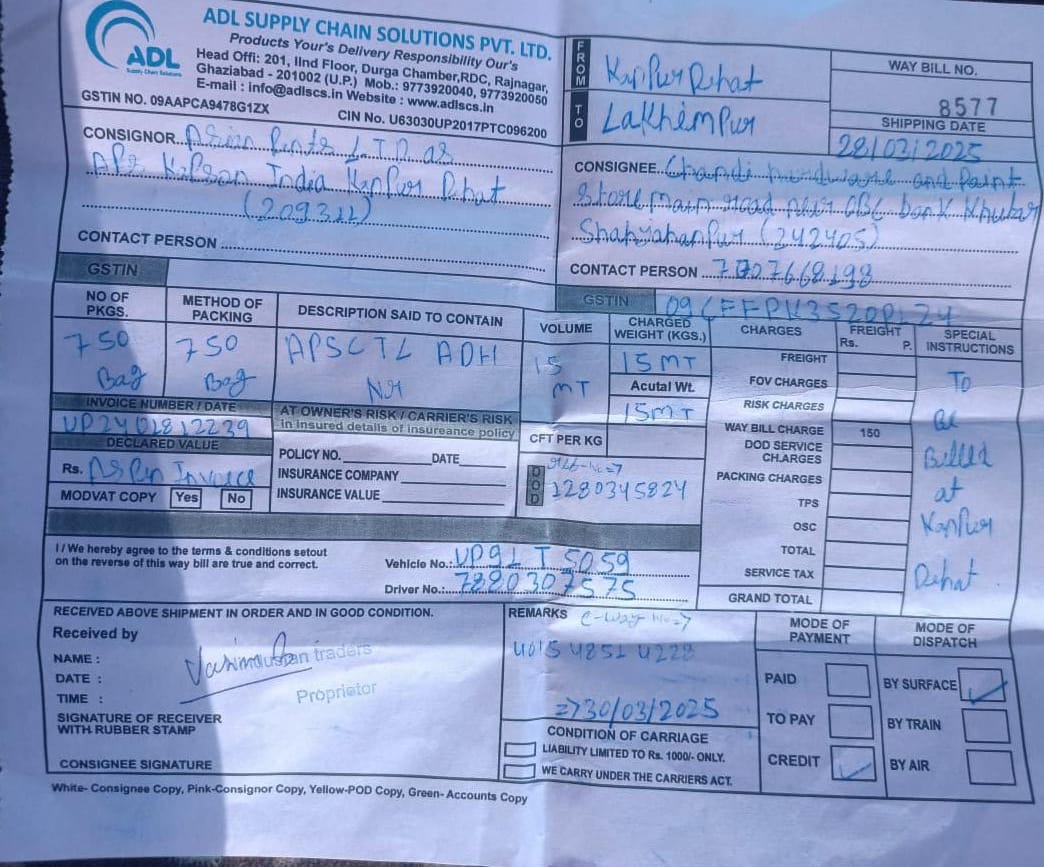 ADL
Supply Chain Solutions
ADL SUPPLY CHAIN SOLUTIONS PVT. LTD.
Products Your's Delivery Responsibility Our's
Head Offi: 201, IInd Floor, Durga Chamber,RDC, Rajnagar,
Ghaziabad - 201002 (U.P.) Mob.: 9773920040, 9773920050
E-mail : info@adlscs.in Website : www.adlscs.in
GSTIN NO. 09AAPCA9478G1ZX CIN No. U63030UP2017PTC096200
FROM Kanpur Dehat
TO Lakhimpur
WAY BILL NO.
8577
SHIPPING DATE
28/03/2025
CONSIGNOR. Asian Paints LTD as
India Kanpur Dehat
CONTACT PERSON
CONSIGNEE Chandi hardware and Paint
Store main road near OBC bank Khutar
Shahjahanpur (242405)
CONTACT PERSON 7007668198
GSTIN
GSTIN
NO OF PKGS.
METHOD OF PACKING
DESCRIPTION SAID TO CONTAIN
VOLUME
CHARGED WEIGHT (KGS.)
CHARGES
FREIGHT
Rs. P.
SPECIAL INSTRUCTIONS
750 Bag
750 Bag
APSCTL ADH
15 MT
15MT
Acutal Wt.
15MT
CFT PER KG
To
be
Billed
at
Kanpur
Dehat
INVOICE NUMBER / DATE
UP2401812239
DECLARED VALUE
Rs. As Per Invoice
MODVAT COPY Yes No
AT OWNER'S RISK / CARRIER'S RISK
in insured details of insureance policy
POLICY NO. DATE
INSURANCE COMPANY
INSURANCE VALUE
DOD
1280345824
FREIGHT
FOV CHARGES
RISK CHARGES
WAY BILL CHARGE 150
DOD SERVICE CHARGES
PACKING CHARGES
TPS
OSC
TOTAL
SERVICE TAX
GRAND TOTAL
I / We hereby agree to the terms & conditions setout
on the reverse of this way bill are true and correct.
Vehicle No.: T 5059
Driver No.:
RECEIVED ABOVE SHIPMENT IN ORDER AND IN GOOD CONDITION.
Received by
NAME :
DATE :
TIME :
traders
Proprietor
SIGNATURE OF RECEIVER
WITH RUBBER STAMP
CONSIGNEE SIGNATURE
REMARKS E-way No=>
4015 4851 4228
=>30/03/2025
CONDITION OF CARRIAGE
LIABILITY LIMITED TO Rs. 1000/- ONLY.
WE CARRY UNDER THE CARRIERS ACT.
MODE OF PAYMENT
PAID
TO PAY
CREDIT
MODE OF DISPATCH
BY SURFACE
BY TRAIN
BY AIR
White- Consignee Copy, Pink-Consignor Copy, Yellow-POD Copy, Green- Accounts Copy